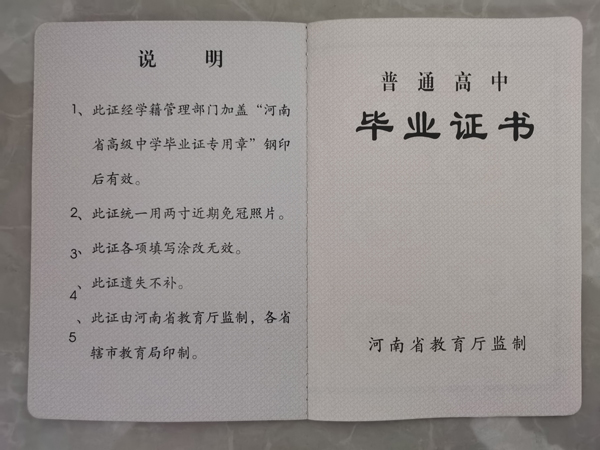 说 明
1、此证经学籍管理部门加盖“河南
省高级中学毕业证专用章”钢印
后有效。
2、此证统一用两寸近期免冠照片。
3、此证各项填写涂改无效。
4、此证遗失不补。
5、此证由河南省教育厅监制，各省
辖市教育局印制。
普通高中
毕业证书
河南省教育厅监制